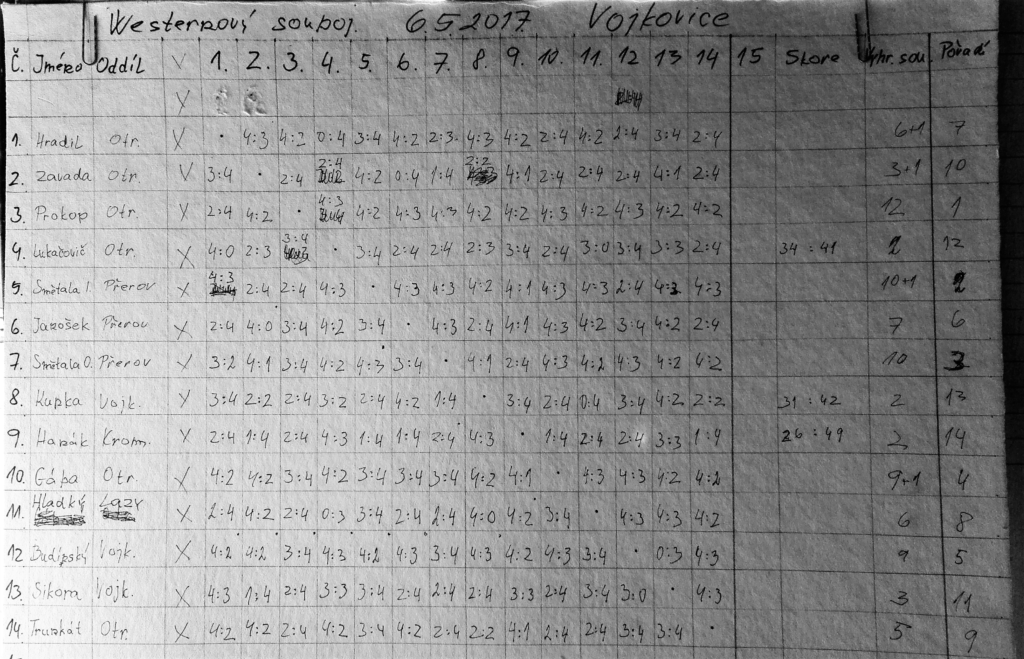 Westernový souboj. 6.5.2017 Vojkovice
Č. Jméno Oddíl V 1. 2. 3. 4. 5. 6. 7. 8. 9. 10. 11. 12 13 14 15 Skore Vyhr. sou. Pořadí
1. Hradil Otr. X · 4:3 4:2 0:4 3:4 4:2 2:3 4:3 4:2 2:4 4:2 2:4 3:4 2:4 6+1 7
2. Zavada Otr. V 3:4 · 2:4 2:4 4:2 0:4 1:4 2:2 4:1 2:4 2:4 2:4 4:1 2:4 3+1 10
3. Prokop Otr. X 2:4 4:2 · 4:3 4:2 4:3 4:3 4:2 4:2 4:3 4:2 4:3 4:2 4:2 12 1
4. Lukačovič Otr. X 4:0 2:3 3:4 · 3:4 2:4 2:4 2:3 3:4 2:4 3:0 3:4 3:3 2:4 34:41 2 12
5. Smětala I. Přerov X 4:3 2:4 2:4 4:3 · 4:3 4:3 4:2 4:1 4:3 4:3 2:4 4:3 4:3 10+1 2
6. Jarošek Přerov X 2:4 4:0 3:4 4:2 3:4 · 4:3 2:4 4:1 4:3 4:2 3:4 4:2 2:4 7 6
7. Smětala O. Přerov X 3:2 4:1 3:4 4:2 4:3 3:4 · 4:1 2:4 4:3 4:2 4:3 4:2 4:2 10 3
8. Kupka Vojk. X 3:4 2:2 2:4 3:2 2:4 4:2 1:4 · 3:4 2:4 0:4 3:4 4:2 2:2 31:42 2 13
9. Hanák Krom. X 2:4 1:4 2:4 4:3 1:4 1:4 2:4 4:3 · 1:4 2:4 2:4 3:3 1:4 26:49 2 14
10. Gába Otr. X 4:2 4:2 3:4 4:2 3:4 3:4 3:4 4:2 4:1 · 4:3 4:3 4:2 4:2 9+1 4
11. Hladký Lazy X 2:4 4:2 2:4 0:3 3:4 2:4 2:4 4:0 4:2 3:4 · 4:3 4:3 4:2 6 8
12 Budínský Vojk. X 4:2 4:2 3:4 4:3 4:2 4:3 3:4 4:3 4:2 4:3 3:4 · 0:3 4:3 9 5
13. Sikora Vojk. X 4:3 1:4 2:4 3:3 3:4 2:4 2:4 2:4 3:3 2:4 3:4 3:0 · 4:3 3 11
14. Trunkát Otr. X 4:2 4:2 2:4 4:2 3:4 4:2 2:4 2:2 4:1 2:4 2:4 3:4 3:4 · 5 9